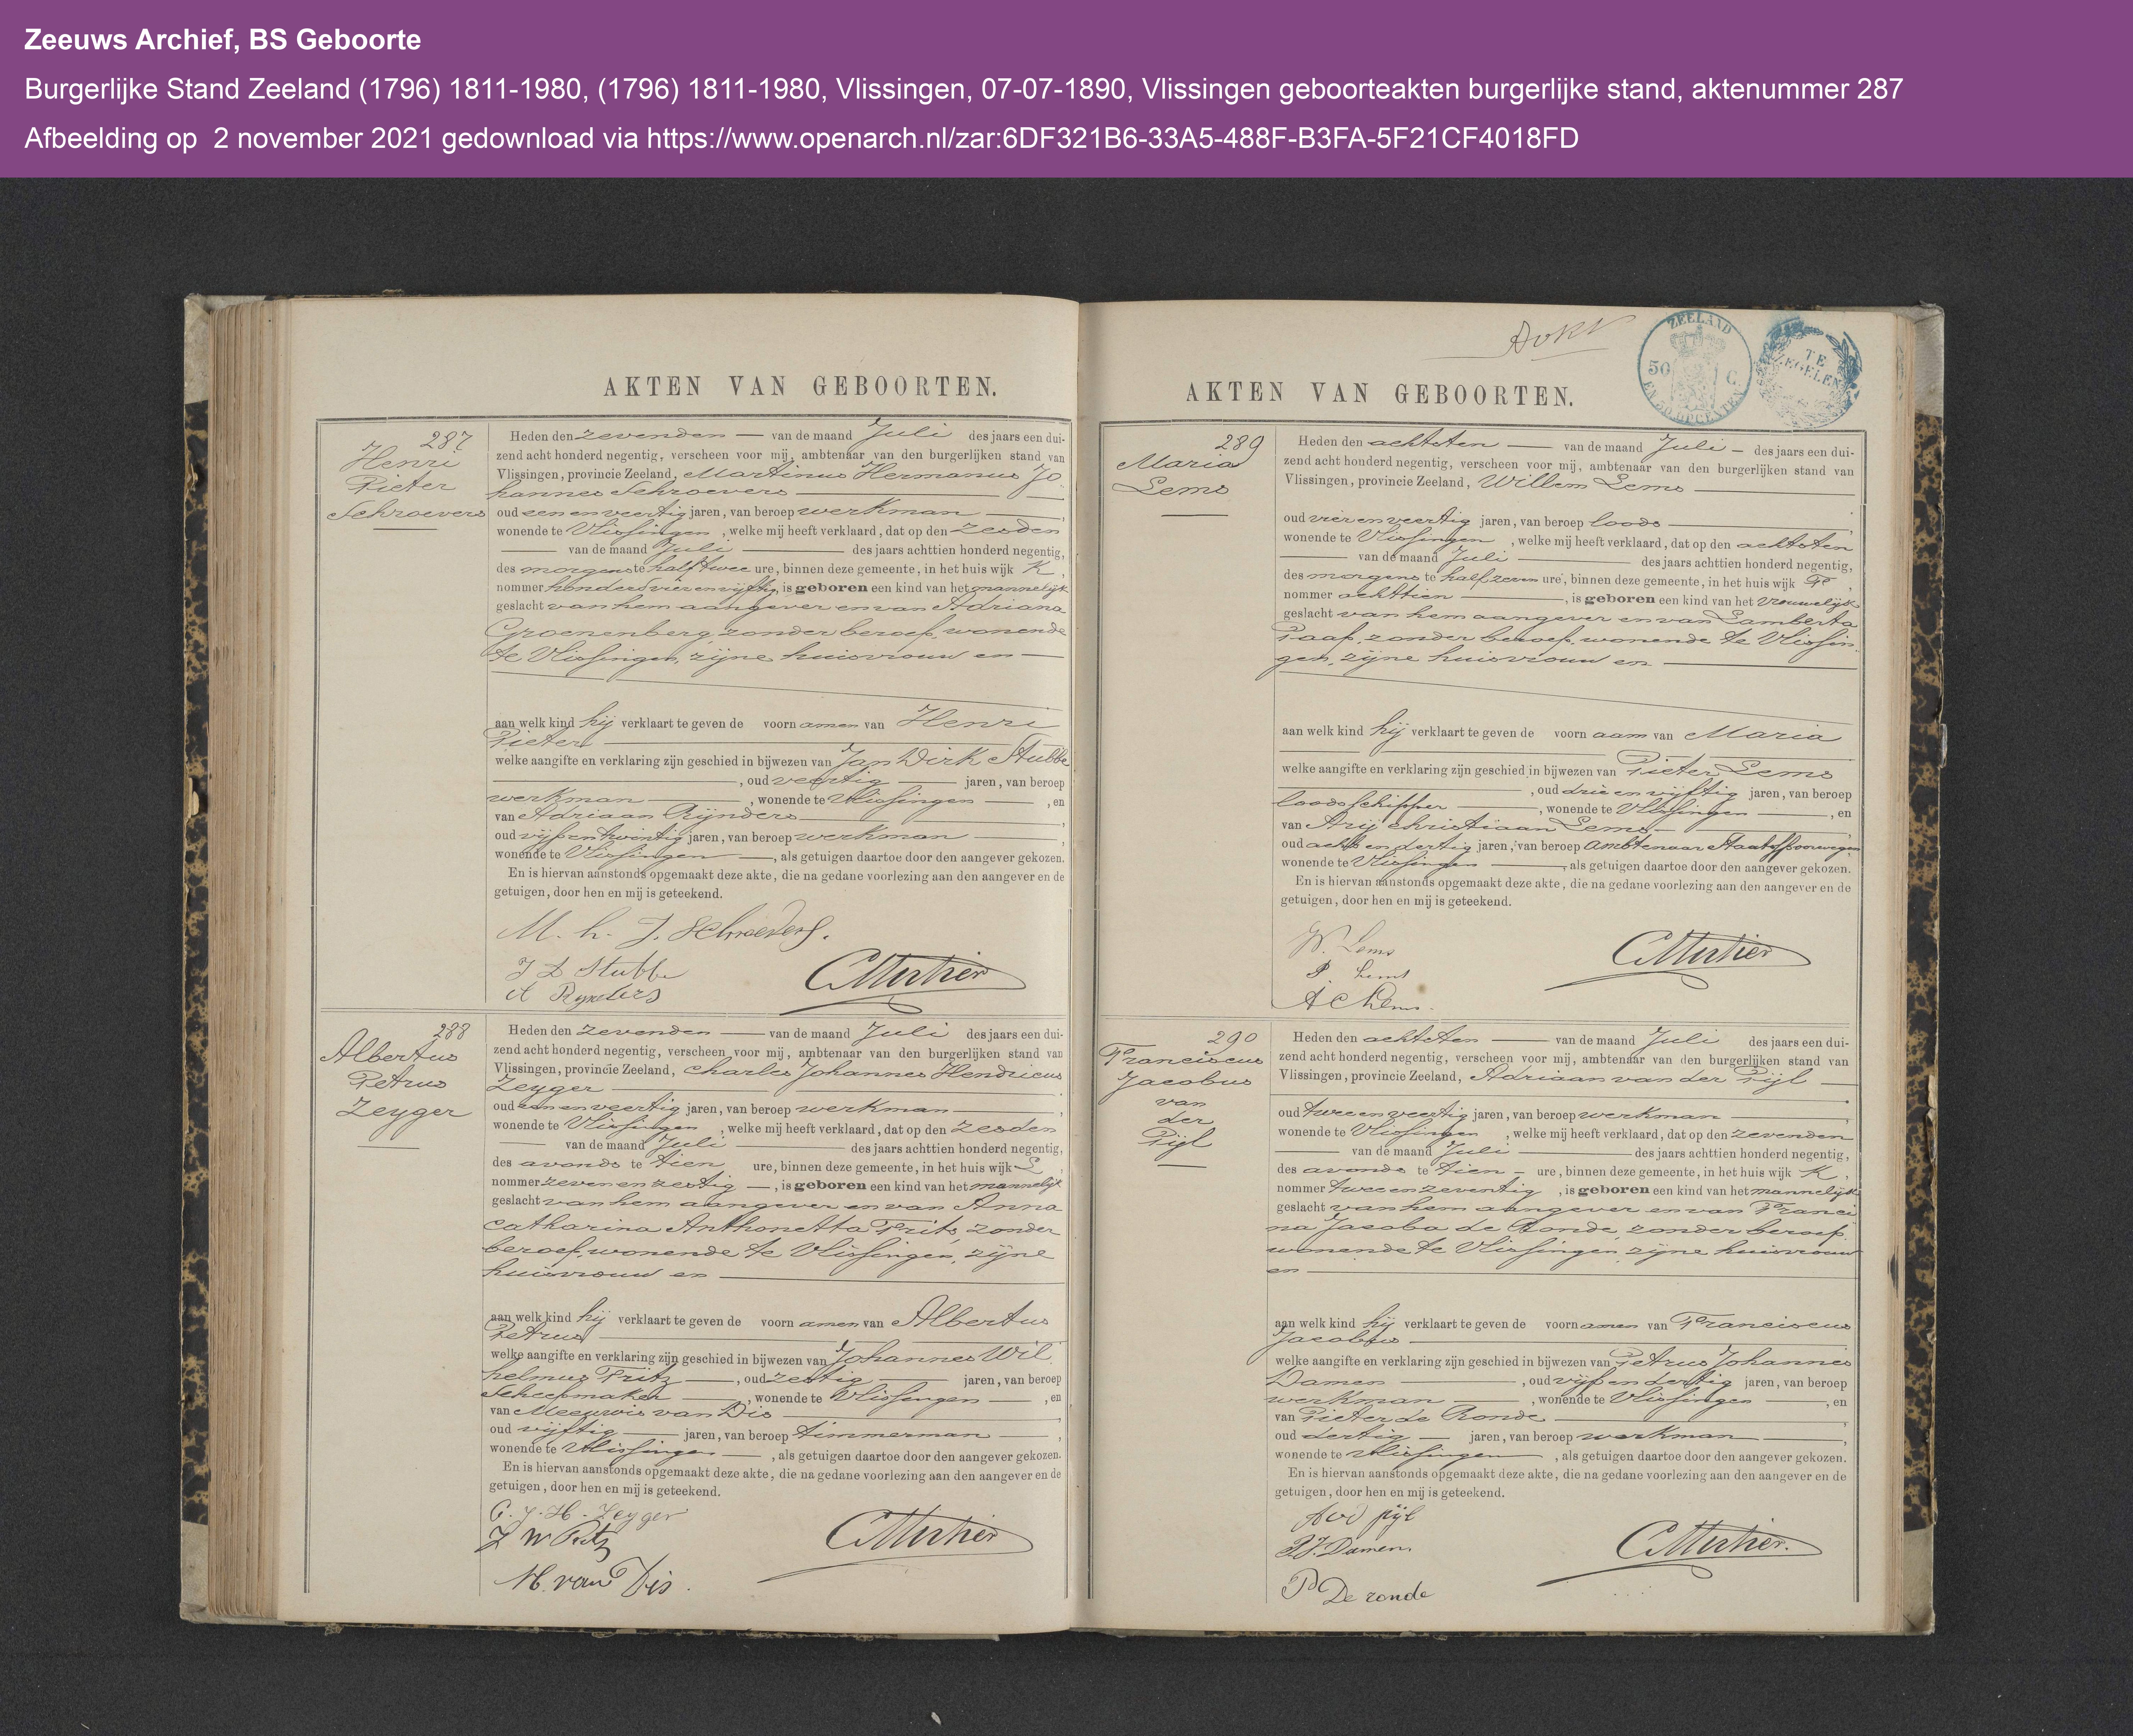 Zeeuws Archief, BS Geboorte
Burgerlijke Stand Zeeland (1796) 1811-1980, (1796) 1811-1980, Vlissingen, 07-07-1890, Vlissingen geboorteakten burgerlijke stand, aktenummer 287
Afbeelding op 2 november 2021 gedownload via https://www.openarch.nl/zar:6DF321B6-33A5-488F-B3FA-5F21CF4018FD
AKTEN VAN GEBOORTEN.
287
Henri
Pieter
Schroevers
Heden den zevenden van de maand Juli des jaars een dui-
zend acht honderd negentig, verscheen voor mij, ambtenaar van den burgerlijken stand van
Vlissingen, provincie Zeeland, Martinus Hermanus Jo
hannes Schroevers
oud een en veertig jaren, van beroep werkman,
wonende te Vlissingen, welke mij heeft verklaard, dat op den zesden
van de maand Juli des jaars achttien honderd negentig,
des morgens te half twee ure, binnen deze gemeente, in het huis wijk K,
nommer honderd vier en vijftig, is geboren een kind van het mannelijk
geslacht van hem aangever en van Adriana
Groenenberg, zonder beroep, wonende
te Vlissingen, zijne huisvrouw en
aan welk kind hij verklaart te geven de voornamen van Henri
Pieter
welke aangifte en verklaring zijn geschied in bijwezen van Jan Dirk Stubbe
, oud veertig jaren, van beroep
werkman, wonende te Vlissingen, en
van Adriaan Rijnders,
oud vijf en twintig jaren, van beroep werkman,
wonende te Vlissingen, als getuigen daartoe door den aangever gekozen.
En is hiervan aanstonds opgemaakt deze akte, die na gedane voorlezing aan den aangever en de
getuigen, door hen en mij is geteekend.
M. h. J. Schroevers.
J D Stubbe
A Rynders
288
Albertus
Petrus
Zeyger
Heden den zevenden van de maand Juli des jaars een dui-
zend acht honderd negentig, verscheen voor mij, ambtenaar van den burgerlijken stand van
Vlissingen, provincie Zeeland, Charles Johannes Hendricus
Zeyger
oud een en veertig jaren, van beroep werkman,
wonende te Vlissingen, welke mij heeft verklaard, dat op den zesden
van de maand Juli des jaars achttien honderd negentig,
des avonds te tien ure, binnen deze gemeente, in het huis wijk L,
nommer zeven en zestig, is geboren een kind van het mannelijk
geslacht van hem aangever en van Anna
Catharina Anthonetta Frits, zonder
beroep, wonende te Vlissingen, zijne
huisvrouw en
aan welk kind hij verklaart te geven de voornamen van Albertus
Petrus
welke aangifte en verklaring zijn geschied in bijwezen van Johannes Wil
helmus Fritz, oud zestig jaren, van beroep
Scheepmaker, wonende te Vlissingen, en
van Meeuwis van Dis,
oud vijftig jaren, van beroep timmerman,
wonende te Vlissingen, als getuigen daartoe door den aangever gekozen.
En is hiervan aanstonds opgemaakt deze akte, die na gedane voorlezing aan den aangever en de
getuigen, door hen en mij is geteekend.
C. J. H. Zeyger
J W Fritz
M. van Dis.
ZEELAND
50 C.
EN 38 OPCENTEN
TE
ZEGELEN
AKTEN VAN GEBOORTEN.
289
Maria
Lems
Heden den achtsten van de maand Juli des jaars een dui-
zend acht honderd negentig, verscheen voor mij, ambtenaar van den burgerlijken stand van
Vlissingen, provincie Zeeland, Willem Lems
oud vier en veertig jaren, van beroep loods,
wonende te Vlissingen, welke mij heeft verklaard, dat op den achtsten
van de maand Juli des jaars achttien honderd negentig,
des morgens te half zeven ure, binnen deze gemeente, in het huis wijk F,
nommer achttien, is geboren een kind van het vrouwelijk
geslacht van hem aangever en van Lamberta
Paaf, zonder beroep, wonende te Vlissin
gen, zijne huisvrouw en
aan welk kind hij verklaart te geven de voornaam van Maria
welke aangifte en verklaring zijn geschied in bijwezen van Pieter Lems
, oud drie en vijftig jaren, van beroep
loodsschipper, wonende te Vlissingen, en
van Arij Christiaan Lems,
oud acht en dertig jaren, van beroep ambtenaar Staatsspoorwegen
wonende te Vlissingen, als getuigen daartoe door den aangever gekozen.
En is hiervan aanstonds opgemaakt deze akte, die na gedane voorlezing aan den aangever en de
getuigen, door hen en mij is geteekend.
W. Lems
P. Lems
A C Lems.
290
Franciscus
Jacobus
van
der
Pijl
Heden den achtsten van de maand Juli des jaars een dui-
zend acht honderd negentig, verscheen voor mij, ambtenaar van den burgerlijken stand van
Vlissingen, provincie Zeeland, Adriaan van der Pijl
oud twee en veertig jaren, van beroep werkman,
wonende te Vlissingen, welke mij heeft verklaard, dat op den zevenden
van de maand Juli des jaars achttien honderd negentig,
des avonds te tien ure, binnen deze gemeente, in het huis wijk K,
nommer twee en zeventig, is geboren een kind van het mannelijk
geslacht van hem aangever en van Franci
na Jacoba de Ronde, zonder beroep,
wonende te Vlissingen, zijne huisvrouw
en
aan welk kind hij verklaart te geven de voornamen van Franciscus
Jacobus
welke aangifte en verklaring zijn geschied in bijwezen van Petrus Johannes
Damen, oud vijf en dertig jaren, van beroep
werkman, wonende te Vlissingen, en
van Pieter de Ronde,
oud dertig jaren, van beroep werkman,
wonende te Vlissingen, als getuigen daartoe door den aangever gekozen.
En is hiervan aanstonds opgemaakt deze akte, die na gedane voorlezing aan den aangever en de
getuigen, door hen en mij is geteekend.
A v d pijl
P. J. Damen
P De ronde